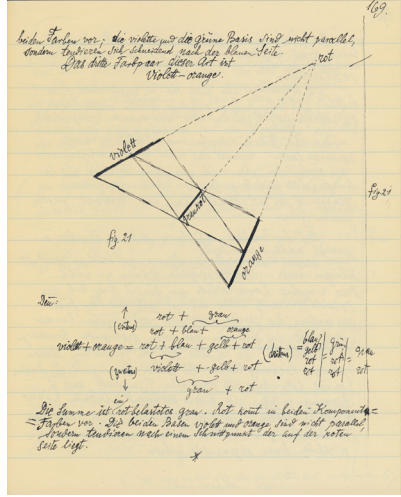 169.
beiden Farben vor; die violette und die grüne Basis sind nicht parallel,
sondern tendieren sich schneidend nach der blauen Seite.
Das dritte Farbpaar dieser Art ist
violett-orange.
rot
violett
graurot
orange
fig. 21
fig. 21
Denn:
rot + grau
(erstens) rot + blau + orange
violett + orange = rot + blau + gelb + rot
(zweitens) violett + gelb + rot
grau + rot
(drittens) =
blau | grün |
gelb | rot = grau
rot | rot = rot
rot
ein
Die Summe ist rotbelastetes grau. Rot komt in beiden Komponent=
=Farben vor. Die beiden Basen violett und orange, sind nicht parallel,
sondern tendieren nach einem Schnittpunkt der auf der roten
Seite liegt.